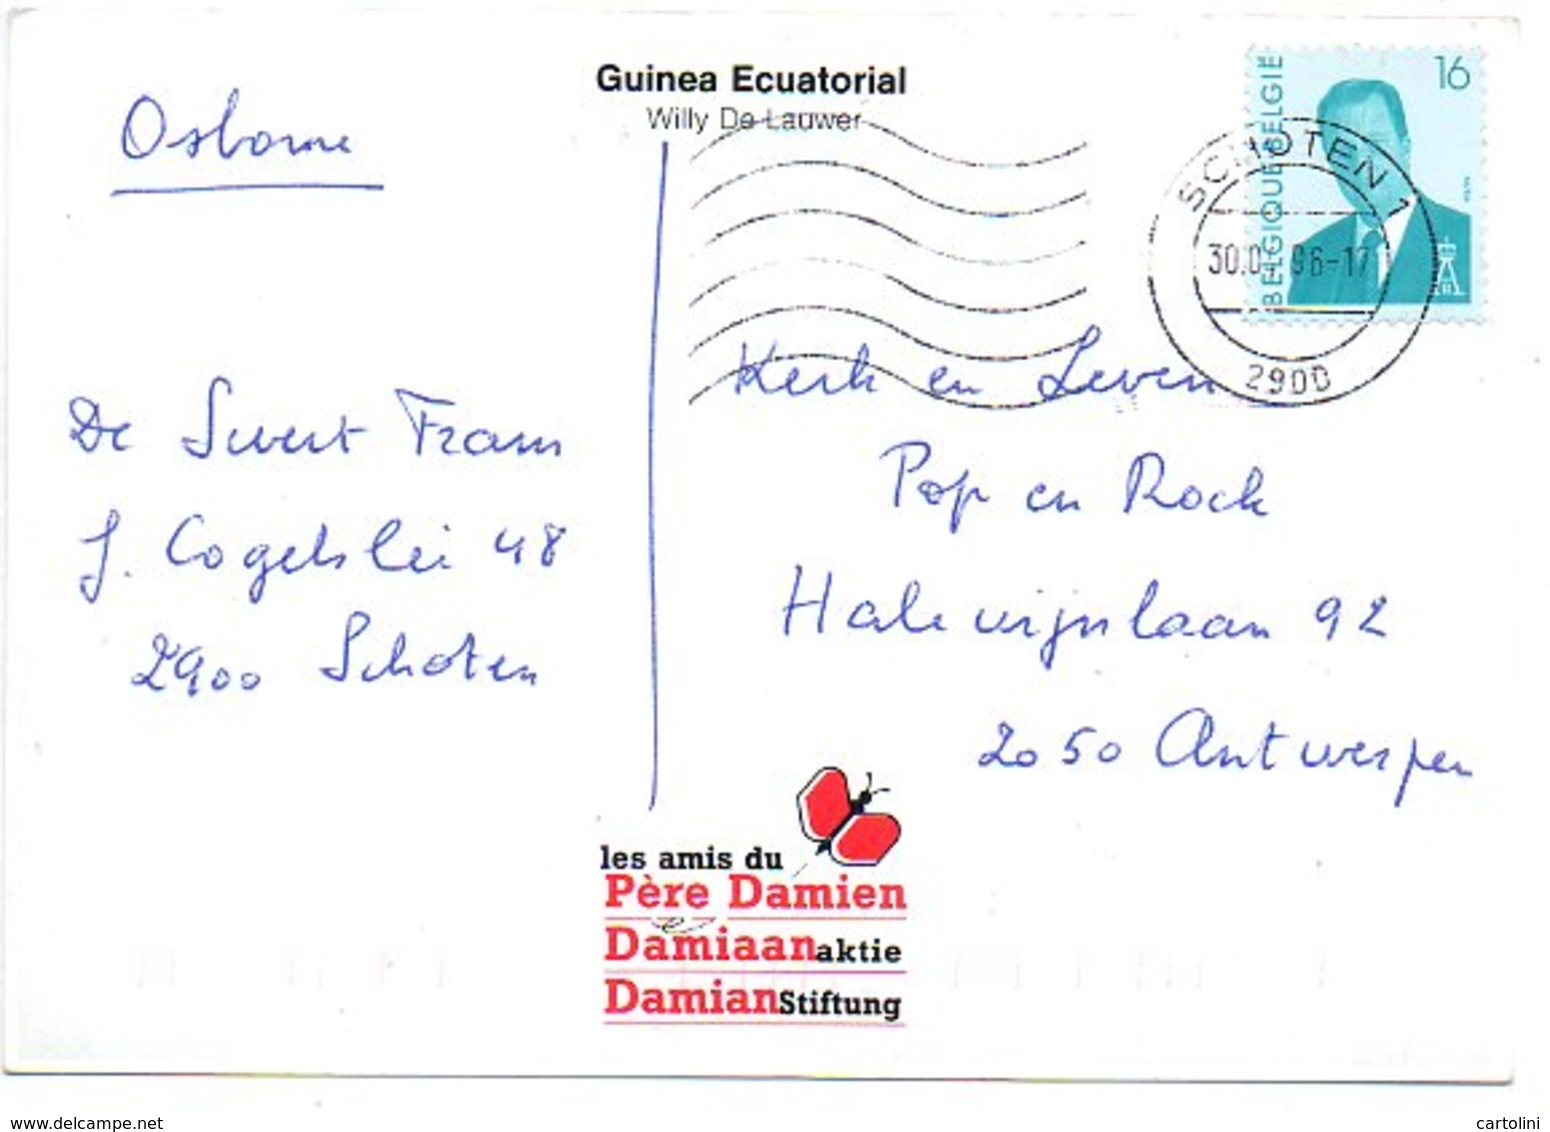 Guinea Ecuatorial
Willy De Lauwer
16
BELGIQUE BELGIE
SCHOTEN 1
96-17
2900
Osborne
De Swert Frans
J. Cogelslei 48
2900 Schoten
Kerk en Leven
Pop en Rock
Halewijnlaan 92
2050 Antwerpen
les amis du
Père Damien
Damiaanaktie
DamianStiftung
www.delcampe.net
cartolini